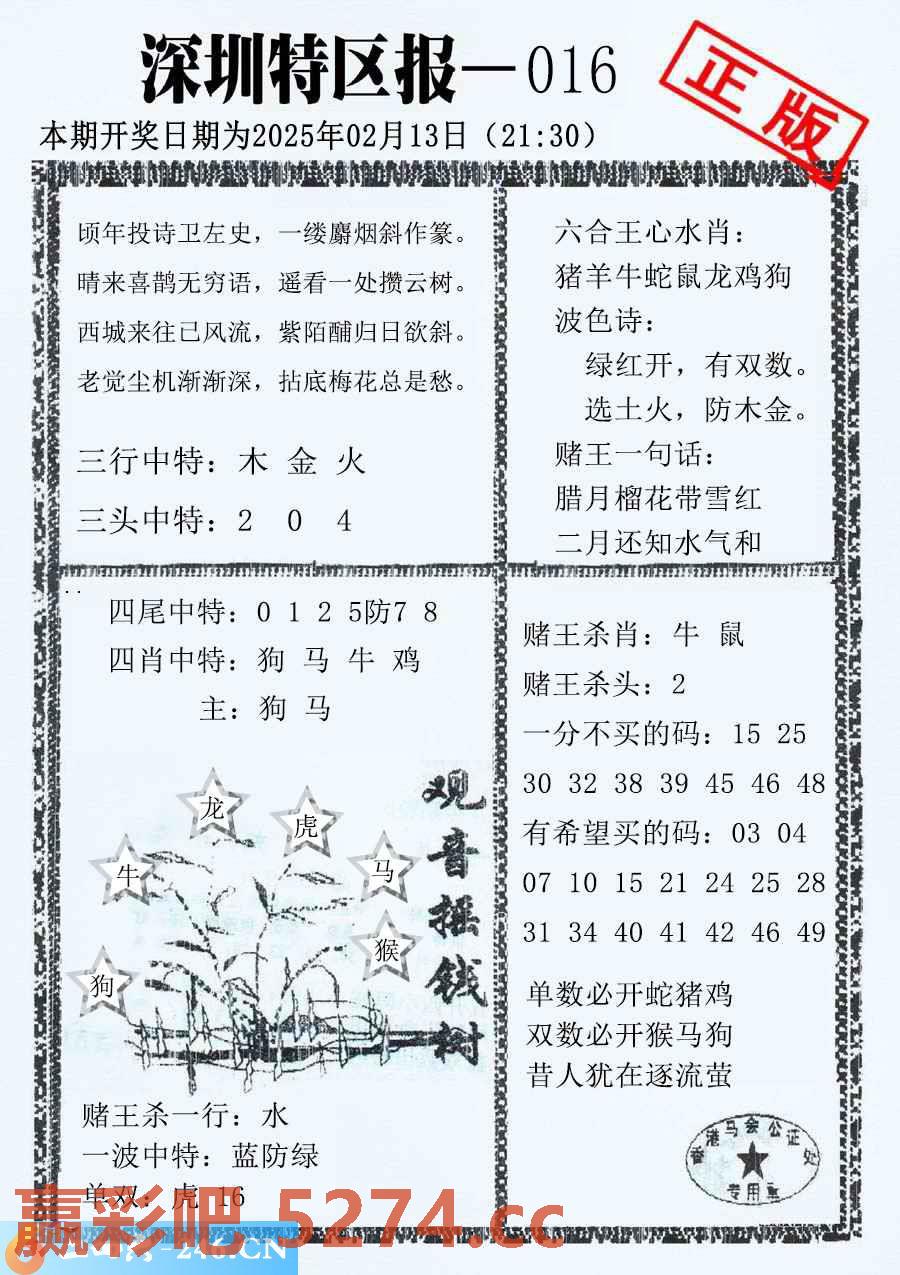 深圳特区报—016
正版
本期开奖日期为2025年02月13日（21:30）
顷年投诗卫左史，一缕麝烟斜作篆。
晴来喜鹊无穷语，遥看一处攒云树。
西城来往已风流，紫陌酺归日欲斜。
老觉尘机渐渐深，拈底梅花总是愁。
三行中特：木 金 火
三头中特：2 0 4
六合王心水肖：
猪羊牛蛇鼠龙鸡狗
波色诗：
绿红开，有双数。
选土火，防木金。
赌王一句话：
腊月榴花带雪红
二月还知水气和
四尾中特：0 1 2 5防7 8
四肖中特：狗 马 牛 鸡
主：狗 马
龙
虎
牛
马
猴
狗
观音摇钱树
赌王杀一行：水
一波中特：蓝防绿
单双：虎 16
赌王杀肖：牛 鼠
赌王杀头：2
一分不买的码：15 25
30 32 38 39 45 46 48
有希望买的码：03 04
07 10 15 21 24 25 28
31 34 40 41 42 46 49
单数必开蛇猪鸡
双数必开猴马狗
昔人犹在逐流萤
香港马会公证处
专用章
赢彩吧 5274.cc
-246.CN